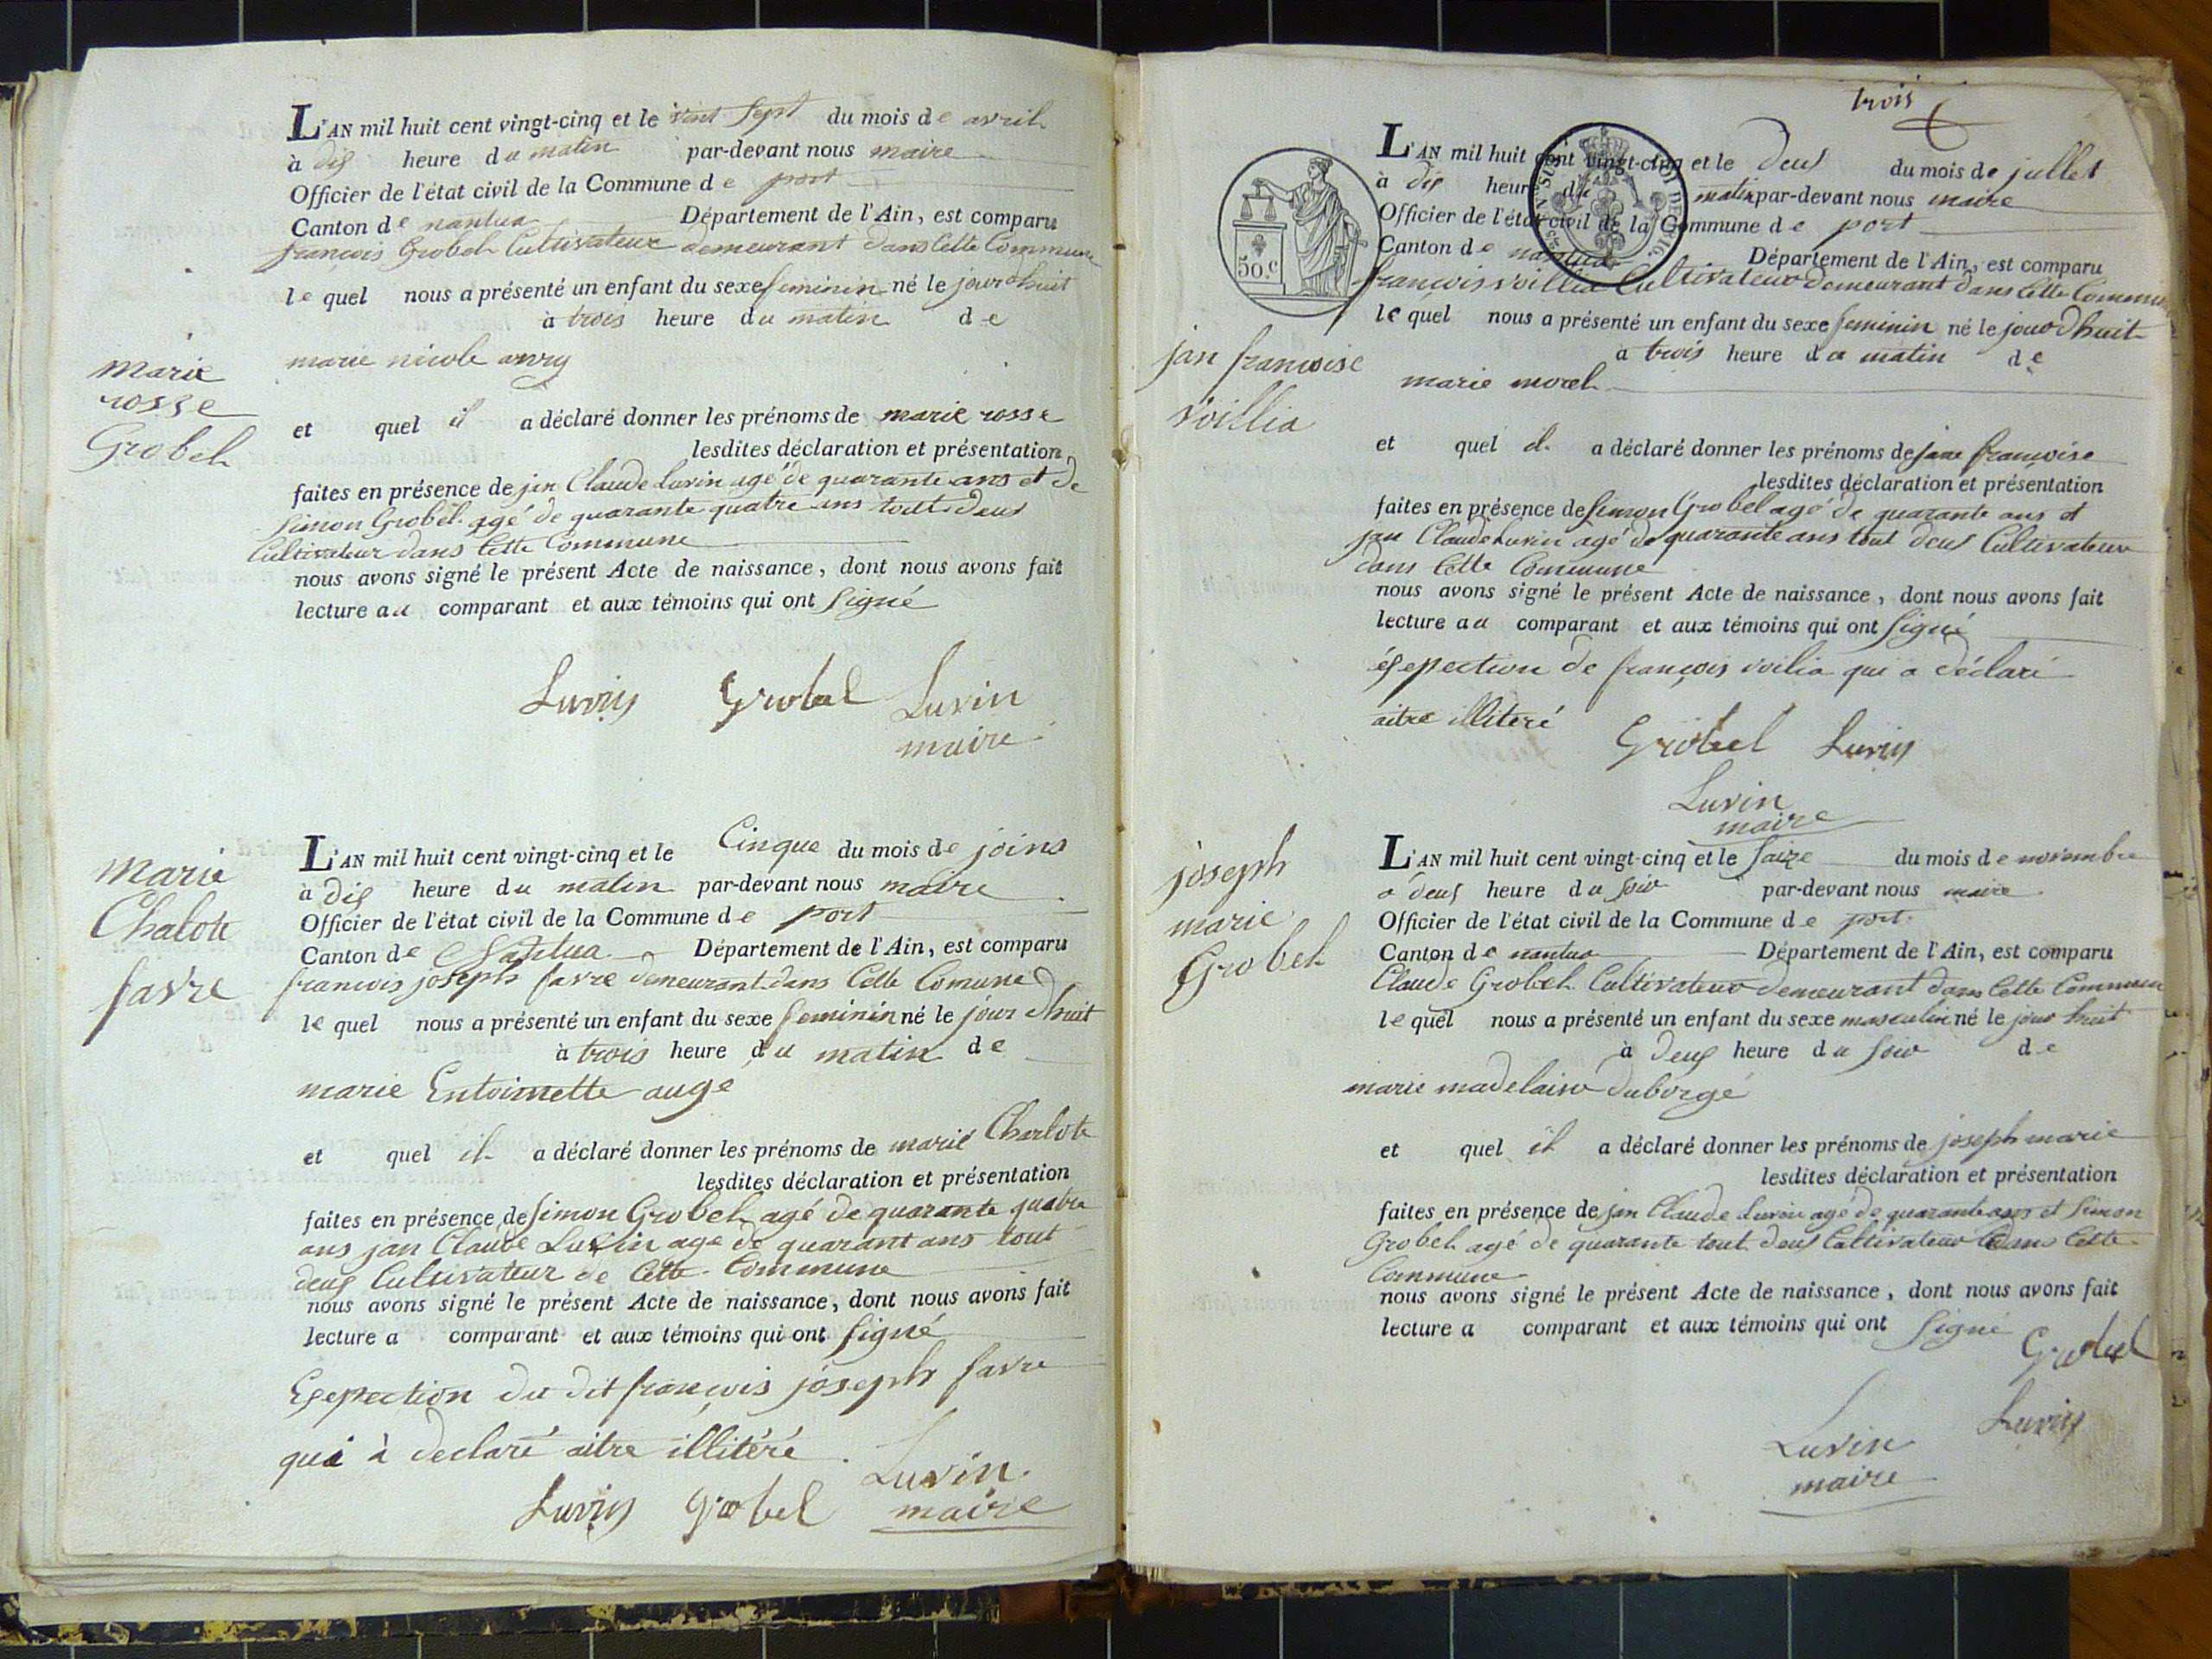 L'AN mil huit cent vingt-cinq et le vint sept du mois de avril
à dis heure du matin par-devant nous maire
Officier de l'état civil de la Commune de port
Canton de nantua Département de l'Ain, est comparu
françois Grobel Cultivateur demeurant dans Cette Commune
le quel nous a présenté un enfant du sexe feminin né le jourdhuit
à trois heure du matin de
marie nicole
marie
rosse
Grobel
et quel il a déclaré donner les prénoms de marie rosse
lesdites déclaration et présentation
faites en présence de jan Claude Luvin agé de quarante ans et de
Simon Grobel agé de quarante quatre ans tout deus
Cultivateur dans Cette Commune
nous avons signé le présent Acte de naissance, dont nous avons fait
lecture au comparant et aux témoins qui ont signé
Luvin Grobel Luvin
maire
Marie
Chalote
favre
L'AN mil huit cent vingt-cinq et le Cinque du mois de joins
à dis heure du matin par-devant nous maire
Officier de l'état civil de la Commune de port
Canton de Nantua Département de l'Ain, est comparu
françois joseph favre demeurant dans Cette Comune
le quel nous a présenté un enfant du sexe feminin né le jour dhuit
à trois heure du matin de
marie Entoinette auge
et quel il a déclaré donner les prénoms de marie Charlote
lesdites déclaration et présentation
faites en présence de Simon Grobel agé de quarante quatre
ans jan Claude Luvin age de quarant ans tout
deus Cultivateur de Cette Commune
nous avons signé le présent Acte de naissance, dont nous avons fait
lecture a comparant et aux témoins qui ont signé
Esepection du dit françois joseph favre
qui à declaré aitre illitéré.
Luvin Grobel Luvin
maire
trois
50.c
L'AN mil huit cent vingt-cinq et le deus du mois de jullet
à dis heure du matin par-devant nous maire
Officier de l'état civil de la Commune de port
Canton de nantua Département de l'Ain, est comparu
françois voillia Cultivateur demeurant dans Cette Commune
le quel nous a présenté un enfant du sexe feminin né le jourdhuit
à trois heure du matin de
marie morel
jan françoise
voillia
et quel il a déclaré donner les prénoms de jane françoise
lesdites déclaration et présentation
faites en présence de Simon Grobel agé de quarante ans et
jan Claude Luvin agé de quarante ans tout deus Cultivateur
dans Cette Commune
nous avons signé le présent Acte de naissance, dont nous avons fait
lecture au comparant et aux témoins qui ont signé
ésepection de françois voilia qui a déclaré
aitre illiteré
Grobel Luvin
Luvin
maire
joseph
marie
Grobel
L'AN mil huit cent vingt-cinq et le saize du mois de novembre
à deus heure du soir par-devant nous maire
Officier de l'état civil de la Commune de port
Canton de nantua Département de l'Ain, est comparu
Claude Grobel Cultivateur demeurant dans Cette Commune
le quel nous a présenté un enfant du sexe masculin né le jour huit
à deus heure du soir de
marie madelaine duborgé
et quel il a déclaré donner les prénoms de joseph marie
lesdites déclaration et présentation
faites en présence de jan Claude Luvin agé de quarante ans et Simon
Grobel agé de quarante tout deus Cultivateur dans Cette
Commune
nous avons signé le présent Acte de naissance, dont nous avons fait
lecture a comparant et aux témoins qui ont signé
Grobel
Luvin
Luvin
maire